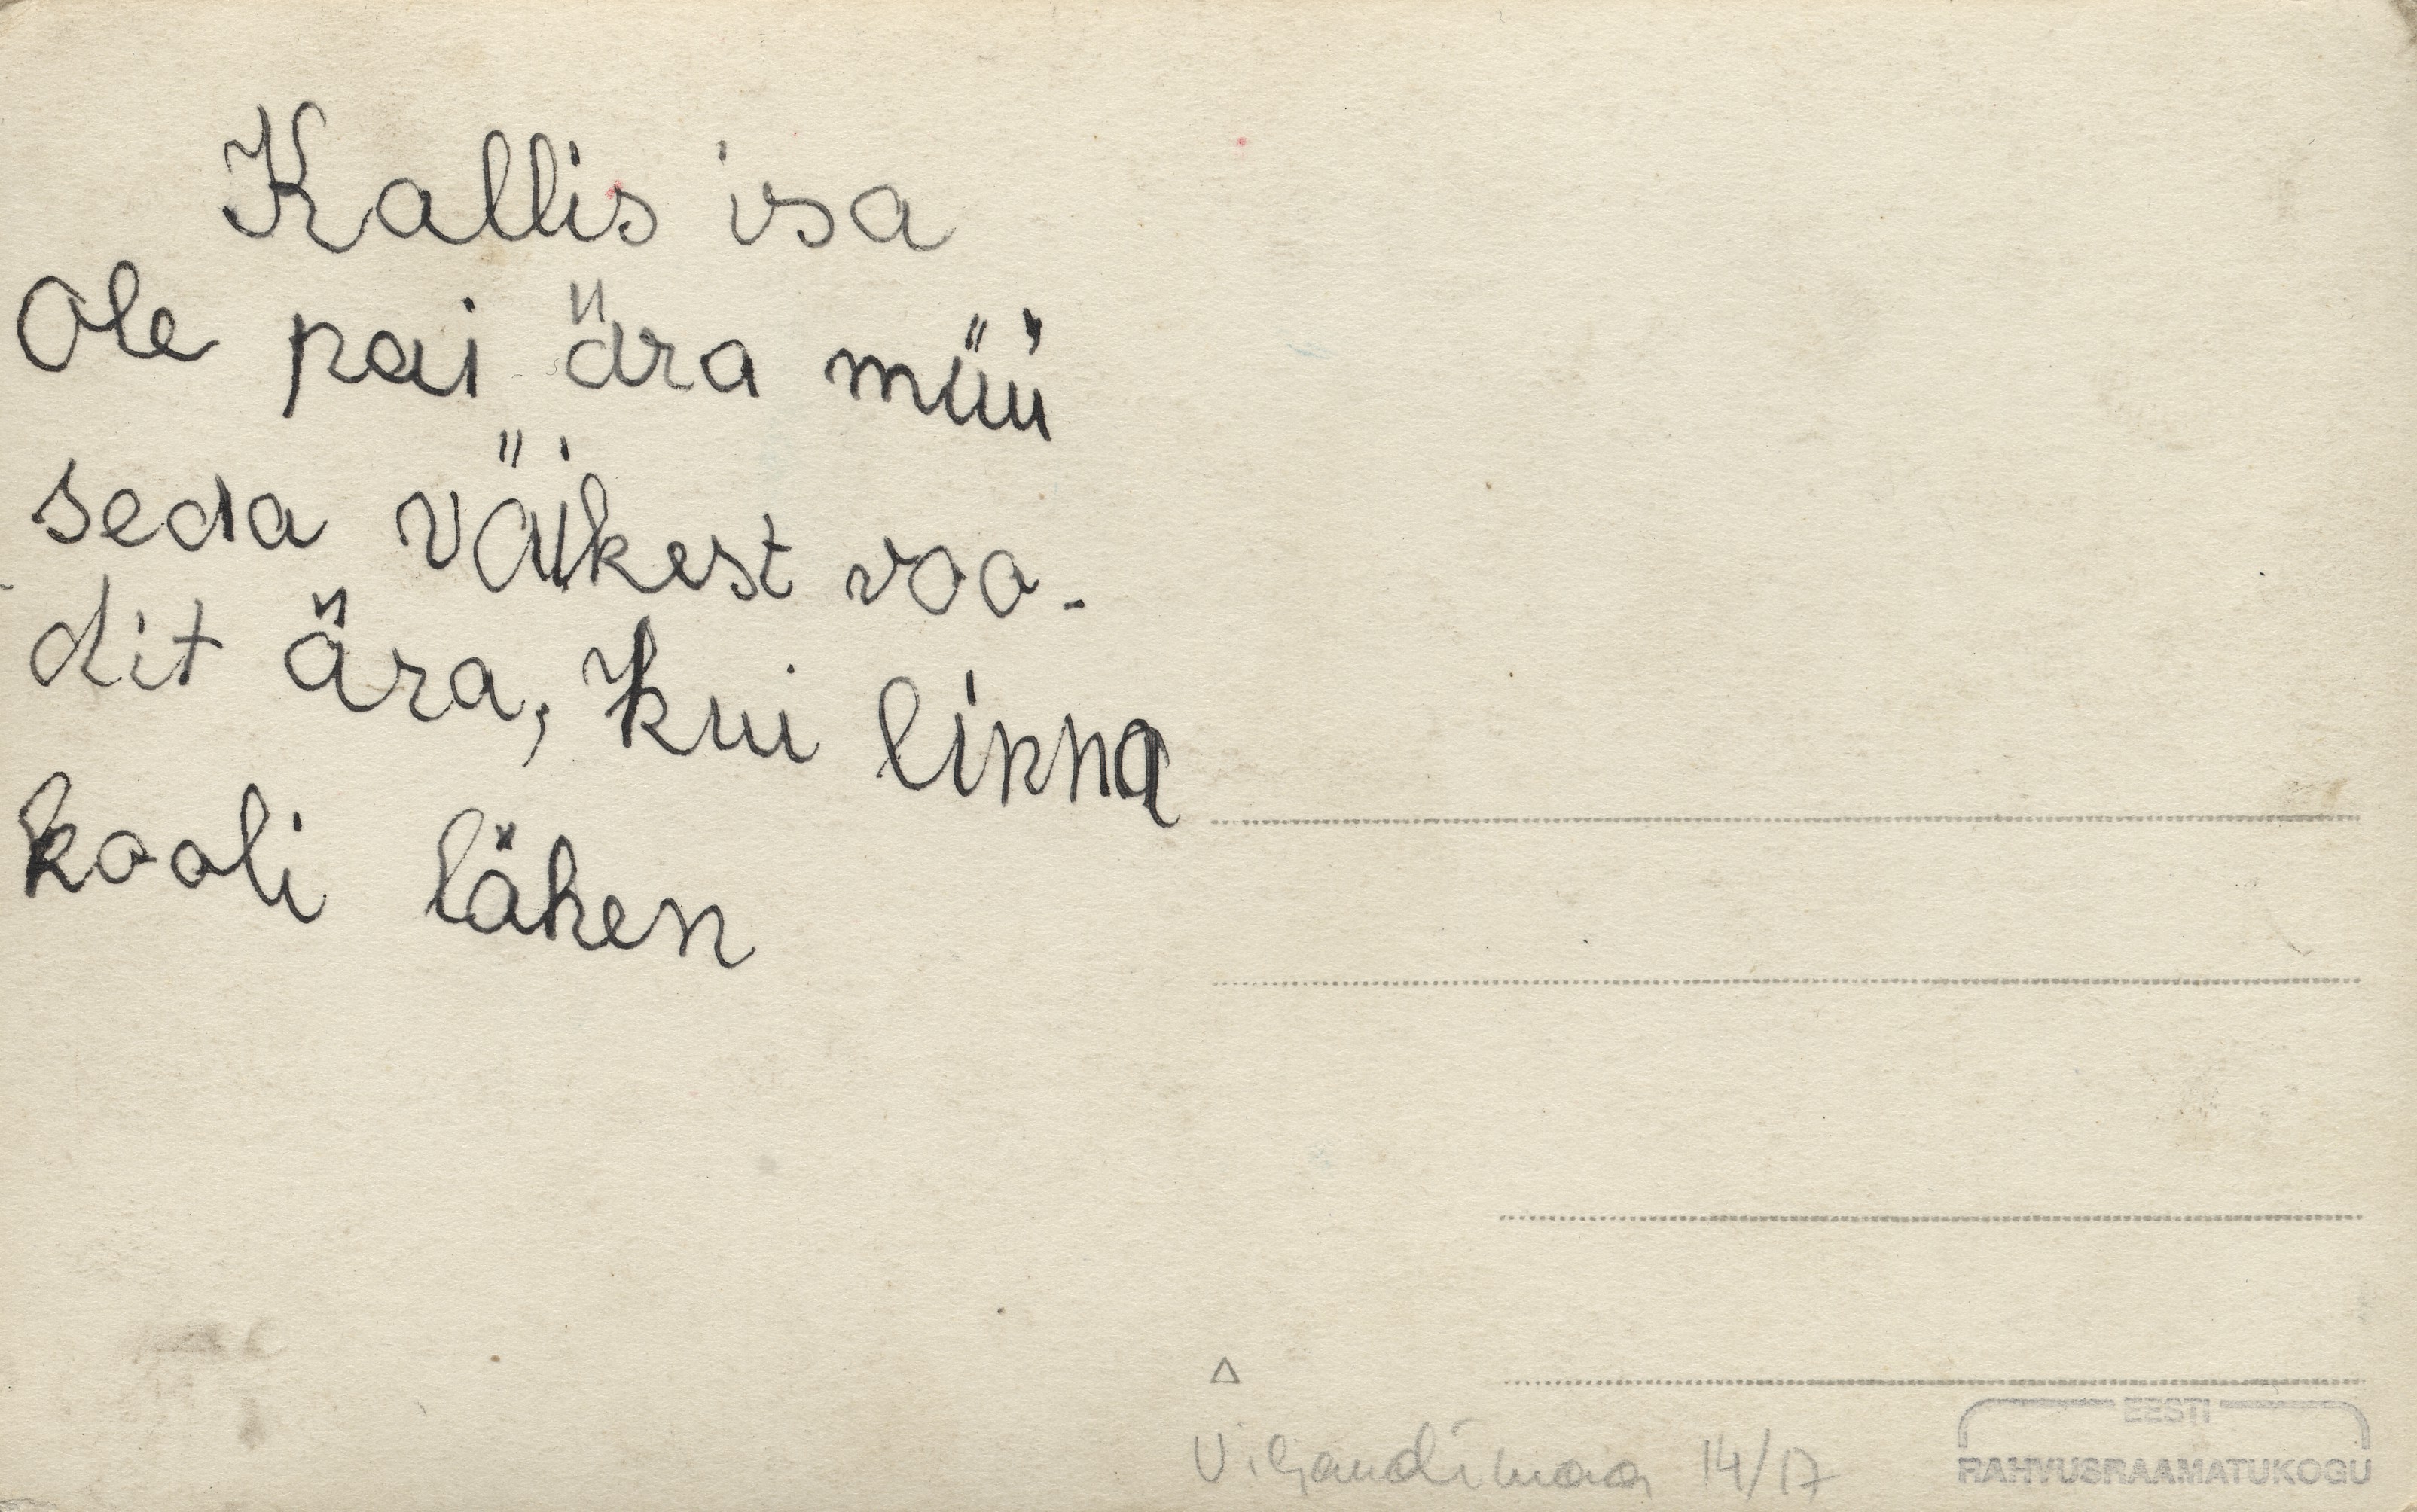 Kallis isa
Ole pai ära müü
seda väikest voo-
dit ära, kui linna
kooli lähen
Viljandimaa 14/17
EESTI
RAHVUSRAAMATUKOGU